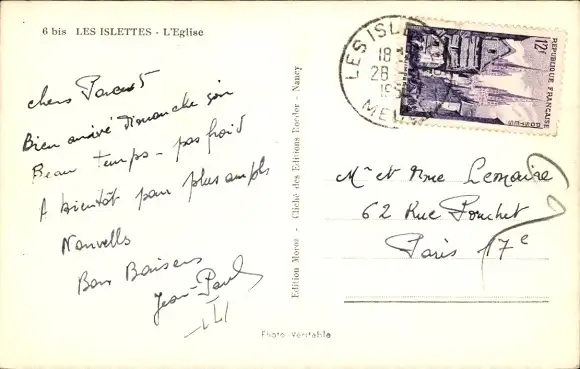 6 bis LES ISLETTES - L'Eglise
chers Parents
Bien arrivé dimanche soir
Beau temps - pas froid
A bientôt pour plus amples
Nouvelles
Bons Baisers
Jean-Paul
Edition Moroz - Cliché des Editions Roeder - Nancy
Photo Véritable
LES ISLETTES
18
28
195
MEUSE
12f
REPUBLIQUE FRANÇAISE
POSTES
Mr et Mme Lemaire
62 Rue Pouchet
Paris 17e